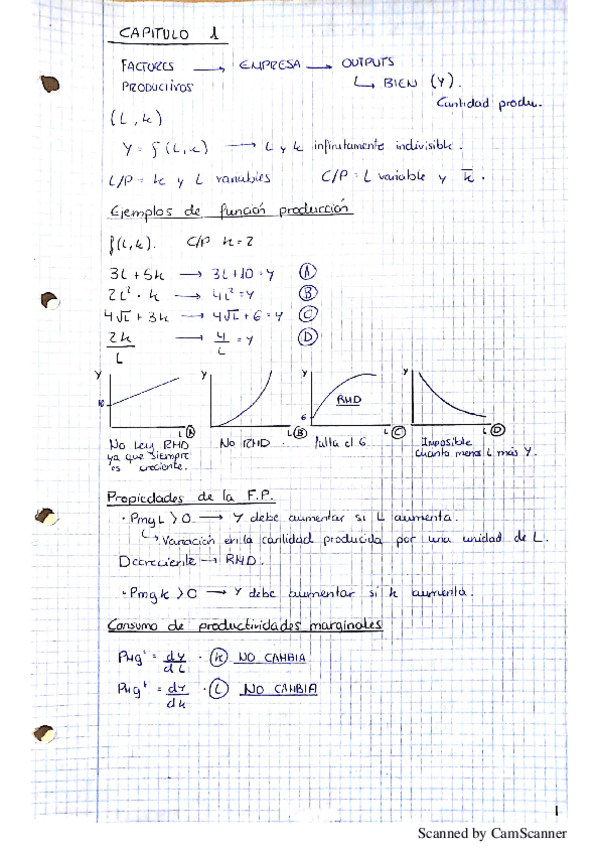 CAPITULO 1
FACTORES PRODUCTIVOS → EMPRESA → OUTPUTS
↳ BIEN (Y).
Cantidad produ.
(L, k)
Y = f(L,k) → L y k infinitamente indivisible.
L/P = k y L variables C/P = L variable y k̅.
Ejemplos de función producción
f(L,k). C/P k=2
3L + 5k → 3L+10=Y Ⓐ
2L² · k → 4L²=Y Ⓑ
4√L + 3k → 4√L + 6 = Y Ⓒ
2k/L → 4/L = Y Ⓓ
Y 10 L Ⓐ
Y L Ⓑ
Y 6 RHD L Ⓒ
Y L Ⓓ
No Ley RHD
ya que siempre
es creciente.
No RHD.
falta el 6
Imposible
cuanto menos L más Y.
Propiedades de la F.P.
· PmgL > 0 → Y debe aumentar si L aumenta.
↳ Variación en la cantidad producida por una unidad de L.
Decreciente → RHD.
· Pmgk > 0 → Y debe aumentar si k aumenta.
Consumo de productividades marginales
PMgᴸ = dY/dL · Ⓚ NO CAMBIA
PMgᵏ = dY/dk · Ⓛ NO CAMBIA
1
Scanned by CamScanner